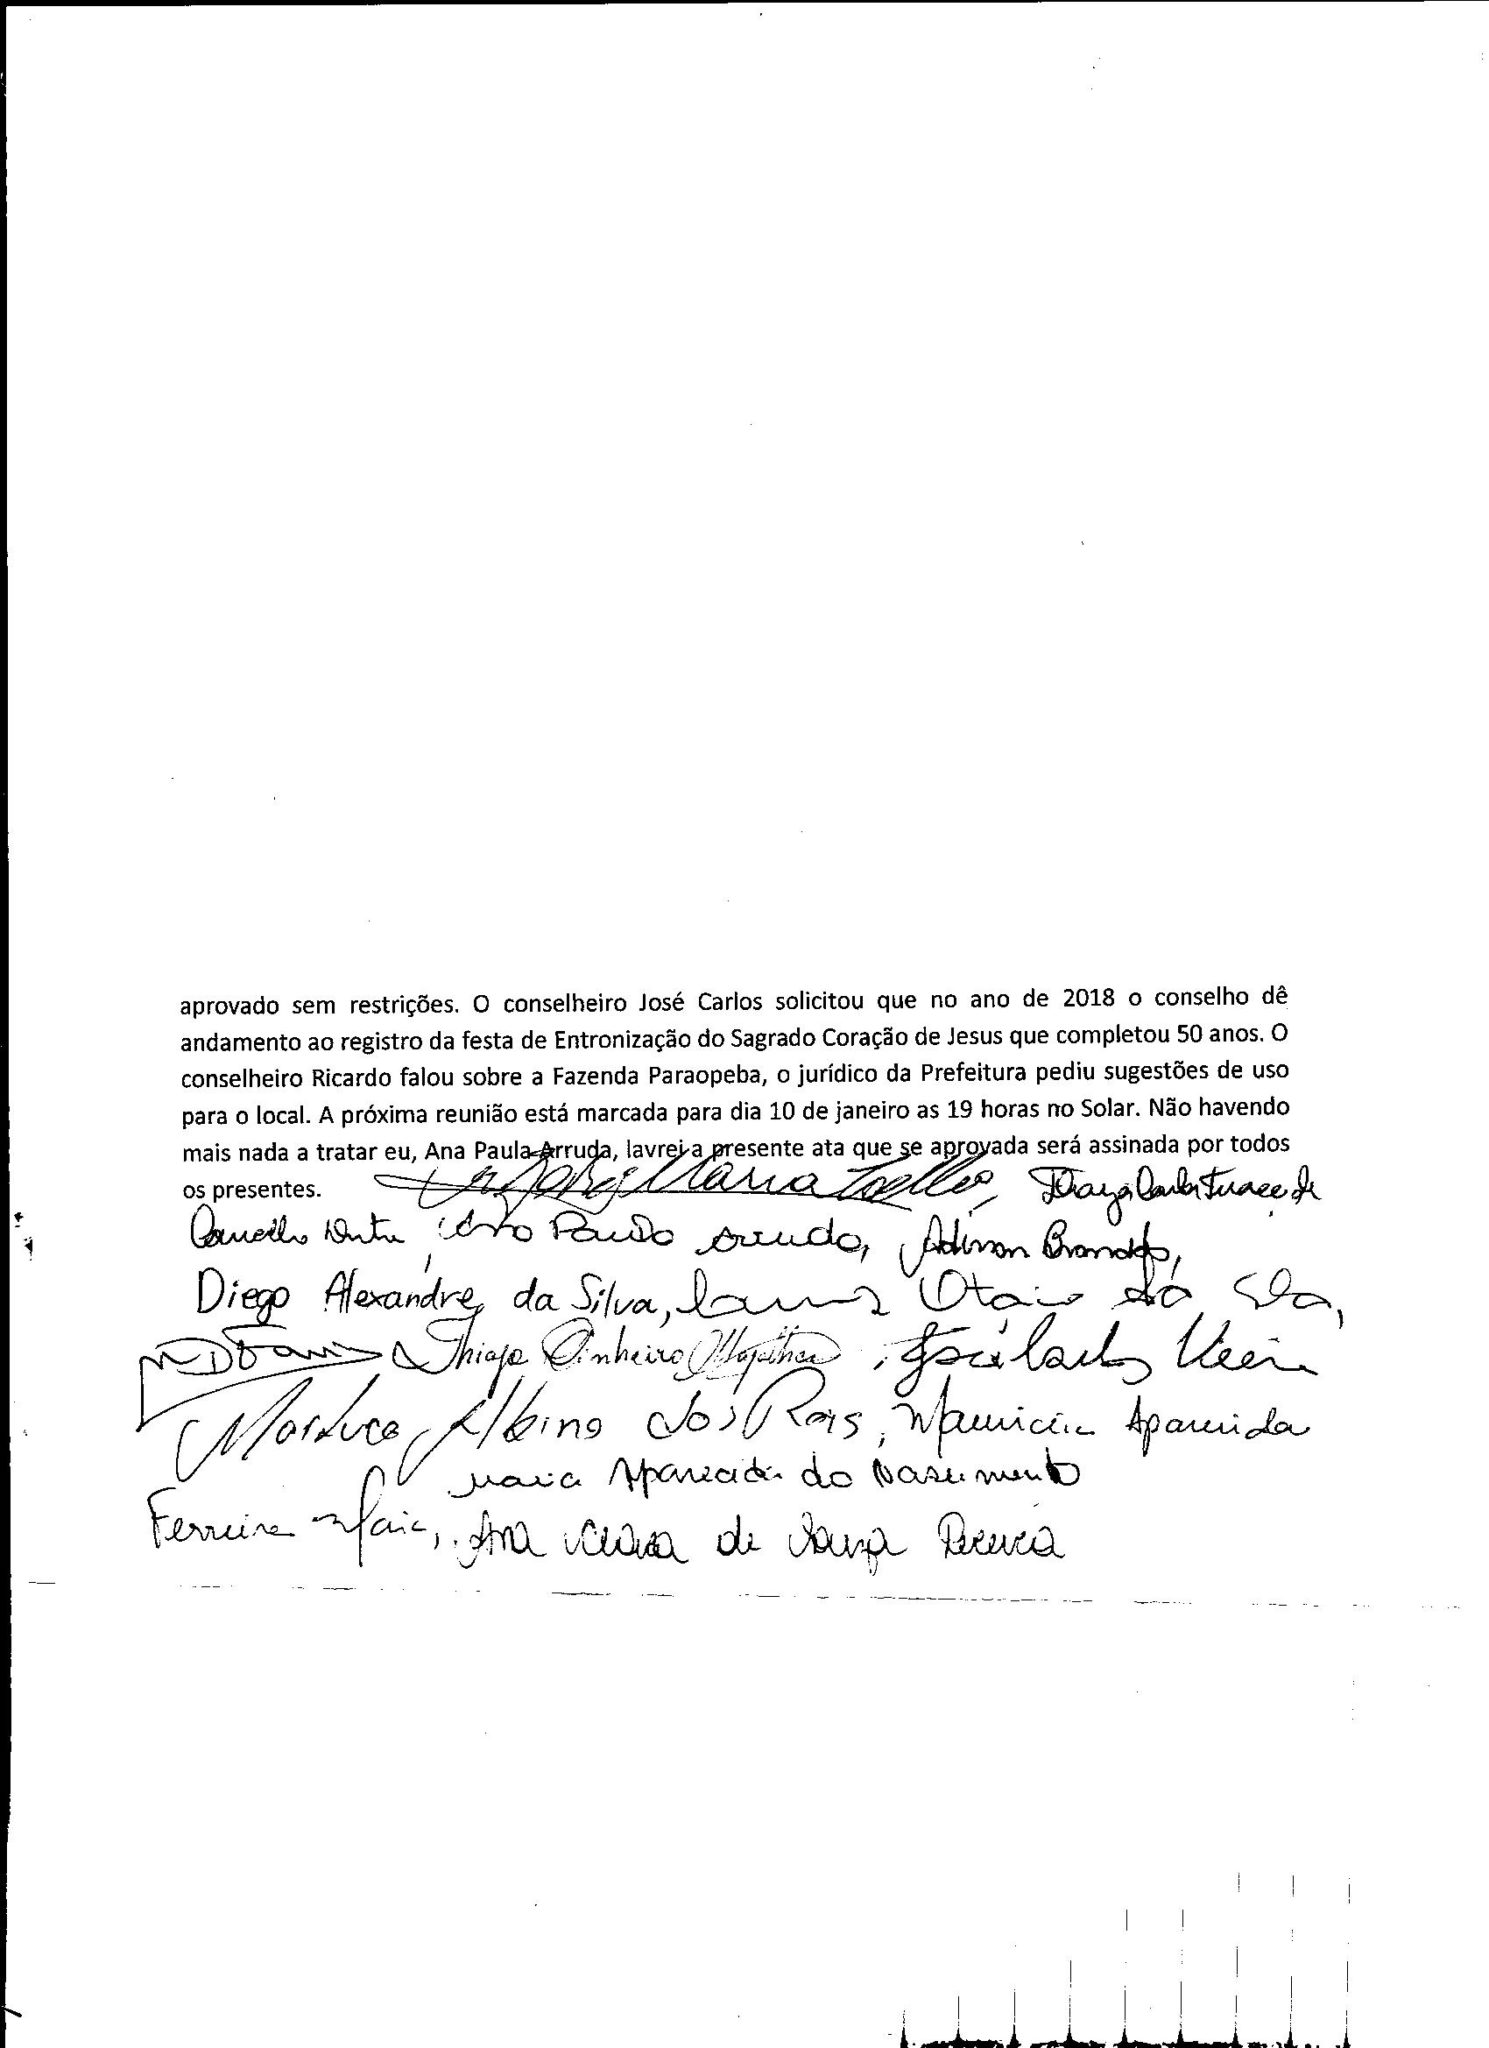 aprovado sem restrições. O conselheiro José Carlos solicitou que no ano de 2018 o conselho dê
andamento ao registro da festa de Entronização do Sagrado Coração de Jesus que completou 50 anos. O
conselheiro Ricardo falou sobre a Fazenda Paraopeba, o jurídico da Prefeitura pediu sugestões de uso
para o local. A próxima reunião está marcada para dia 10 de janeiro as 19 horas no Solar. Não havendo
mais nada a tratar eu, Ana Paula Arruda, lavrei a presente ata que se aprovada será assinada por todos
os presentes. Maria Coelho,
Ana Paula Arruda,
Diego Alexandre da Silva,
Thiago Pinheiro José Carlos Vieira
Albino dos Reis, Aparecida
Maria Aparecida do Nascimento
Ferreira Maia, Ana Clara de Souza Pereira